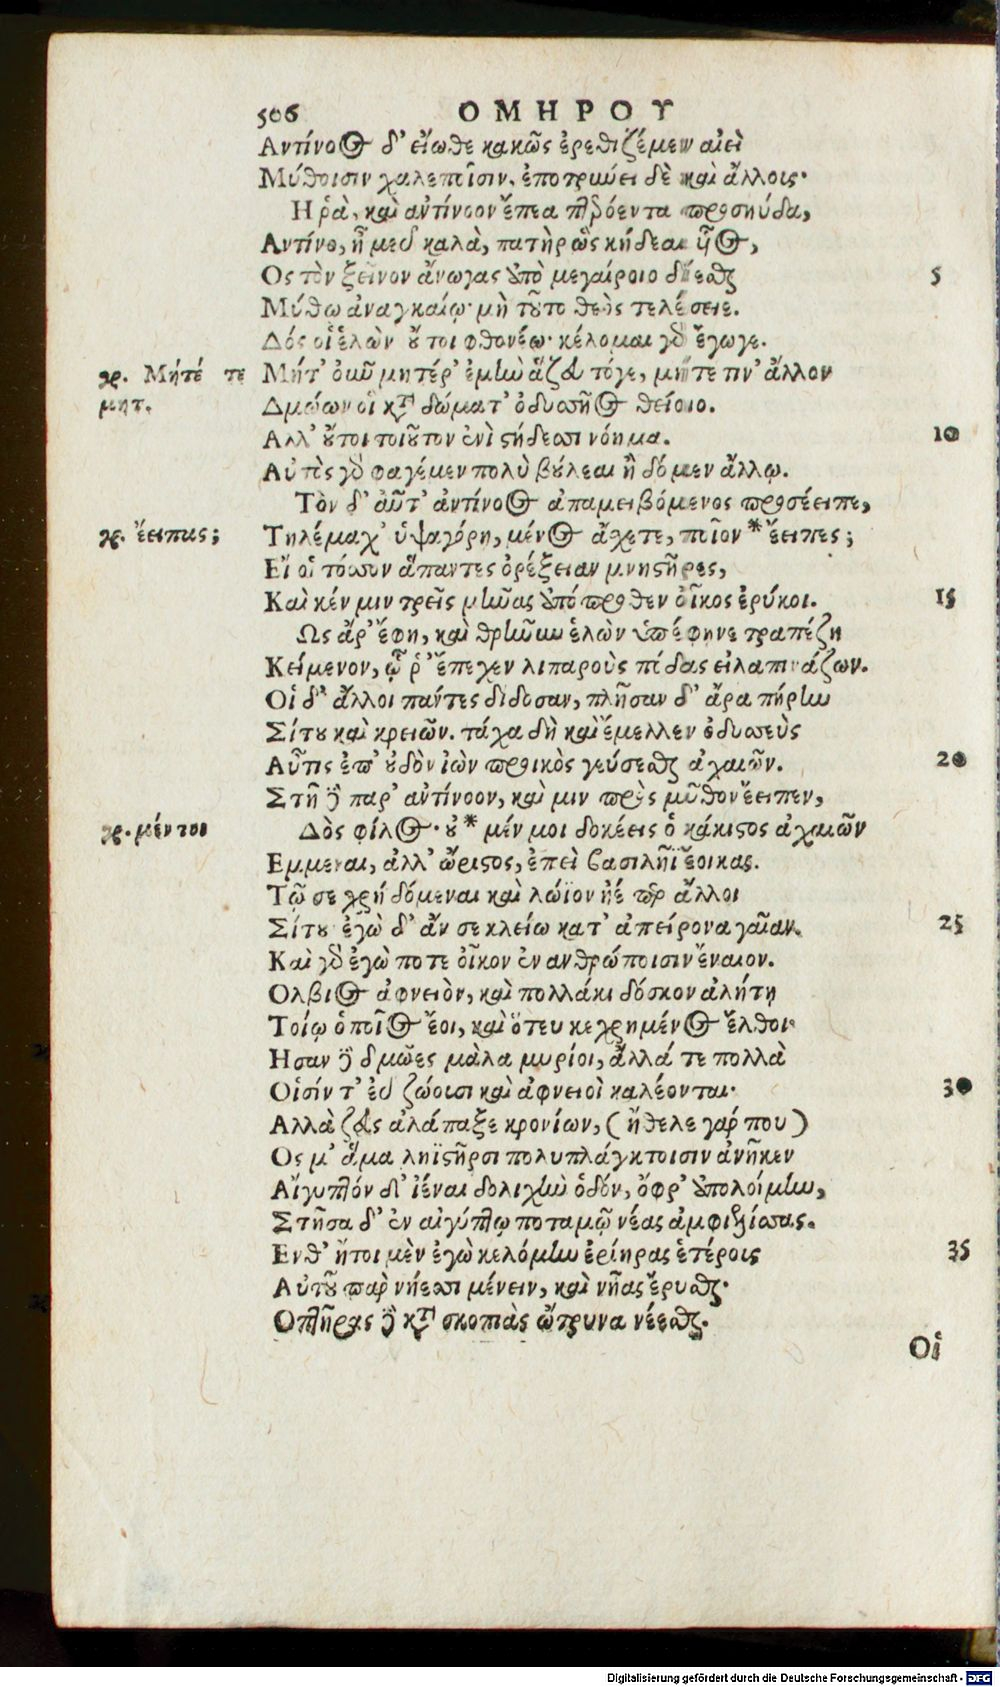 506 ΟΜΗΡΟΥ
Αντίνος δ' εἴωθε κακῶς ἐρεθιζέμεν αἰεὶ
Μύθοισιν χαλεποῖσιν, ἐποτρύνει δὲ καὶ ἄλλοις·
Η ῥὰ, καὶ αὐτίνοον ἔπεα πτερόεντα προσηύδα,
Αντίνο, ἦ μευ καλὰ, πατὴρ ὣς κήδεαι ἧος,
Ος τὸν ξεῖνον ἄνωγας ἀπὸ μεγαίροιο δίεσθαι 5
Μύθω ἀναγκαίῳ· μὴ τοῦτο θεὸς τελέσειε.
Δός οἱ ἑλὼν οὔ τοι φθονέω· κέλομαι γὰρ ἔγωγε.
γρ. Μήτέ τε Μήτ' οὖν μητέρ' ἐμὴν ἅζευ τόγε, μήτε τιν' ἄλλον
μητ. Δμώων οἳ κατὰ δώματ' ὀδυσσῆος θείοιο.
Αλλ' οὔτοι τοιοῦτον ἐνὶ στήθεσσι νόημα. 10
Αὐτὸς γὰρ φαγέμεν πολὺ βούλεαι ἢ δόμεν ἄλλῳ.
Τὸν δ' αὖτ' ἀντίνοος ἀπαμειβόμενος προσέειπε,
γρ. ἔειπας; Τηλέμαχ' ὑψαγόρη, μένος ἄσχετε, ποῖον * ἔειπες;
Εἴ οἱ τόσσον ἅπαντες ὀρέξειαν μνηστῆρες,
Καὶ κέν μιν τρεῖς μῆνας ἀπόπροθεν οἶκος ἐρύκοι. 15
Ως ἄρ' ἔφη, καὶ θρῆνυν ἑλὼν ὑπέφηνε τραπέζη
Κείμενον, ᾧ ῥ' ἔπεχεν λιπαροὺς πόδας εἰλαπινάζων.
Οἱ δ' ἄλλοι πάντες δίδοσαν, πλῆσαν δ' ἄρα πήρην
Σίτου καὶ κρειῶν. τάχα δὴ καὶ ἔμελλεν ὀδυσσεὺς
Αὖτις ἐπ' οὐδὸν ἰὼν προικὸς γεύσεσθαι ἀχαιῶν. 20
Στῆ δὲ παρ' αὐτίνοον, καὶ μιν πρὸς μῦθον ἔειπεν,
γρ. μέν τοι Δὸς φίλος· οὐ * μέν μοι δοκέεις ὁ κάκιστος ἀχαιῶν
Εμμεναι, ἀλλ' ὤριστος, ἐπεὶ βασιλῆϊ ἔοικας.
Τῷ σε χρή δόμεναι καὶ λώϊον ἠέ περ ἄλλοι
Σίτου ἐγὼ δ' ἄν σε κλείω κατ' ἀπείρονα γαῖαν. 25
Καὶ γὰρ ἐγὼ ποτε οἶκον ἐν ανθρώποισιν ἔναιον.
Ολβιος ἀφνειὸν, καὶ πολλάκι δόσκον ἀλήτῃ
Τοίῳ ὁποῖος ἔοι, καὶ ὅτευ κεχρημένος ἔλθοι·
Ησαν δὲ δμῶες μάλα μυρίοι, ἄλλά τε πολλὰ
Οἷσίν τ' ἐὺ ζώουσι καὶ ἀφνειοὶ καλέονται· 30
Αλλὰ ζεὺς ἀλάπαξε κρονίων, (ἤθελε γαρ που)
Ος μ' ἅμα ληϊστῆρσι πολυπλάγκτοισιν ἀνῆκεν
Αἴγυπτόν δ' ἰέναι δολιχὴν ὁδόν, ὄφρ' ἀπολοίμην,
Στῆσα δ' ἐν αἰγύπτῳ ποταμῷ νέας ἀμφιελίσσας.
Ενθ' ἤτοι μὲν ἐγὼ κελόμην ἐρίηρας ἑτέροις 35
Αὐτοῦ παρ νήεσσι μένειν, καὶ νῆας ἔρυσθαι·
Οπτῆρας δὲ κατὰ σκοπιὰς ὤτρυνα νέεσθαι.
Οἱ
Digitalisierung gefördert durch die Deutsche Forschungsgemeinschaft - DFG